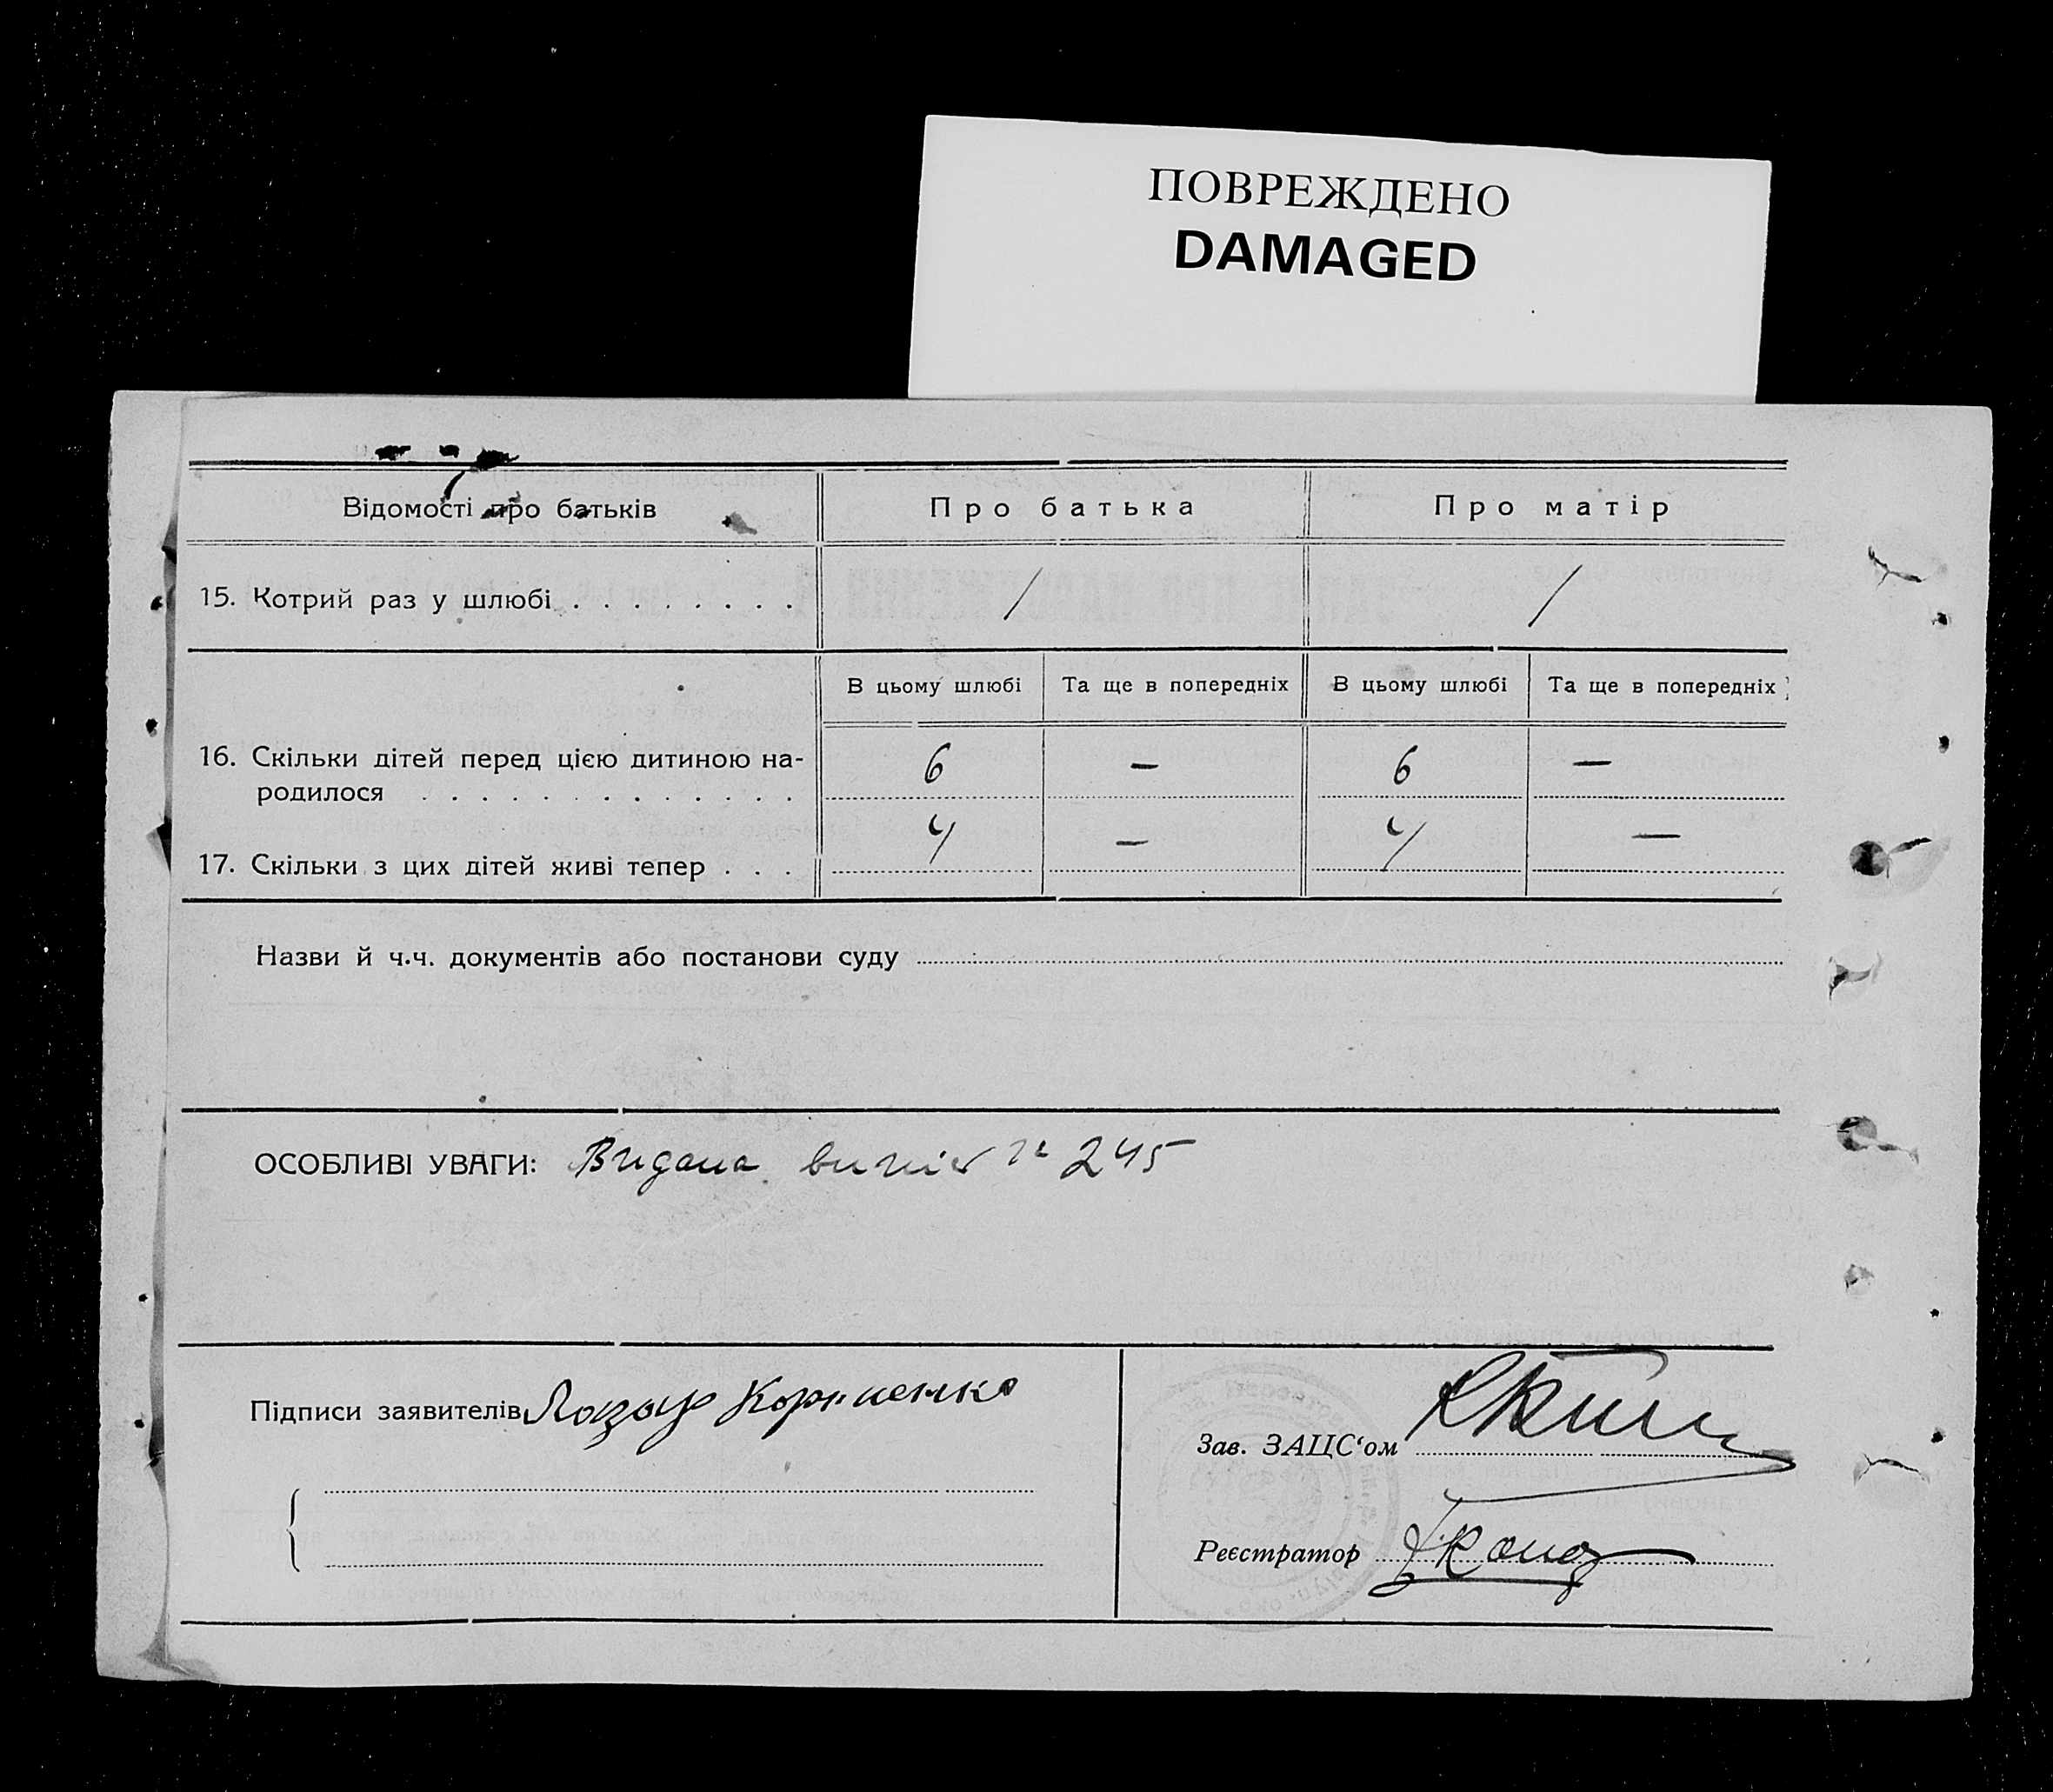 ПОВРЕЖДЕНО
DAMAGED
Відомості про батьків
Про батька
Про матір
15. Котрий раз у шлюбі . . . . . . . .
/
/
В цьому шлюбі
Та ще в попередніх
В цьому шлюбі
Та ще в попередніх
16. Скільки дітей перед цією дитиною на-
родилося . . . . . . . . . . . . .
6
—
6
—
17. Скільки з цих дітей живі тепер . . .
4
—
4
—
Назви й ч.ч. документів або постанови суду
ОСОБЛИВІ УВАГИ: Видана випис № 245
Підписи заявителів Лазар Корниенко
Зав. ЗАЦС‘ом
Реєстратор